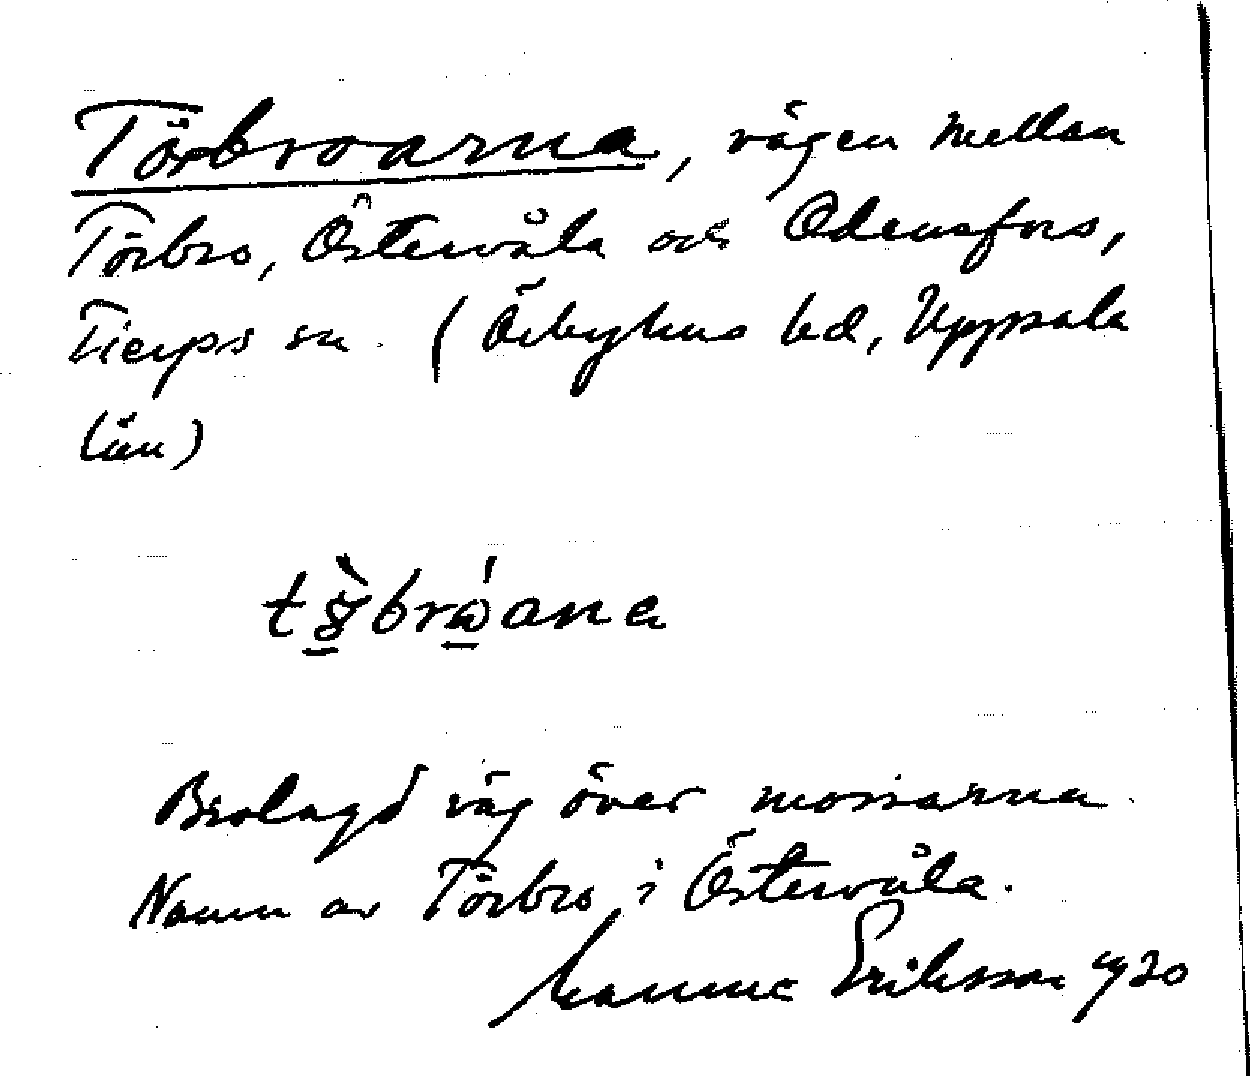 Törbroarna, vägen mellan
Törbro, Östervåla och Odensfors,
Tierps sn. (Örbyhus hd, Uppsala
län)
Brolagd väg över mossarna.
Namn av Törbro i Östervåla.
Manne Eriksson 1920